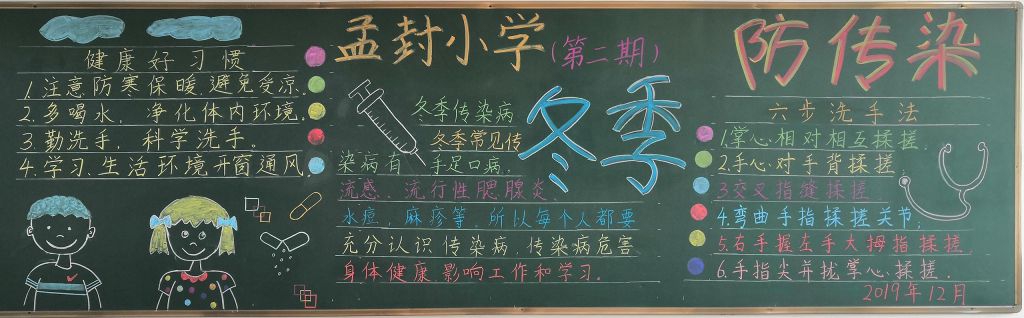 健康好习惯
1.注意防寒保暖,避免受凉.
2.多喝水,净化体内环境.
3.勤洗手,科学洗手。
4.学习、生活环境开窗通风
孟封小学(第二期)
冬季
冬季传染病
冬季常见传
染病有:手足口病,
流感、流行性腮腺炎、
水痘,麻疹等,所以每个人都要
充分认识传染病,传染病危害
身体健康影响工作和学习.
防传染
六步洗手法
1.掌心相对相互揉搓.
2.手心对手背揉搓
3.交叉指缝揉搓
4.弯曲手指揉搓关节,
5.右手握左手大拇指揉搓.
6.手指尖并拢掌心揉搓.
2019年12月